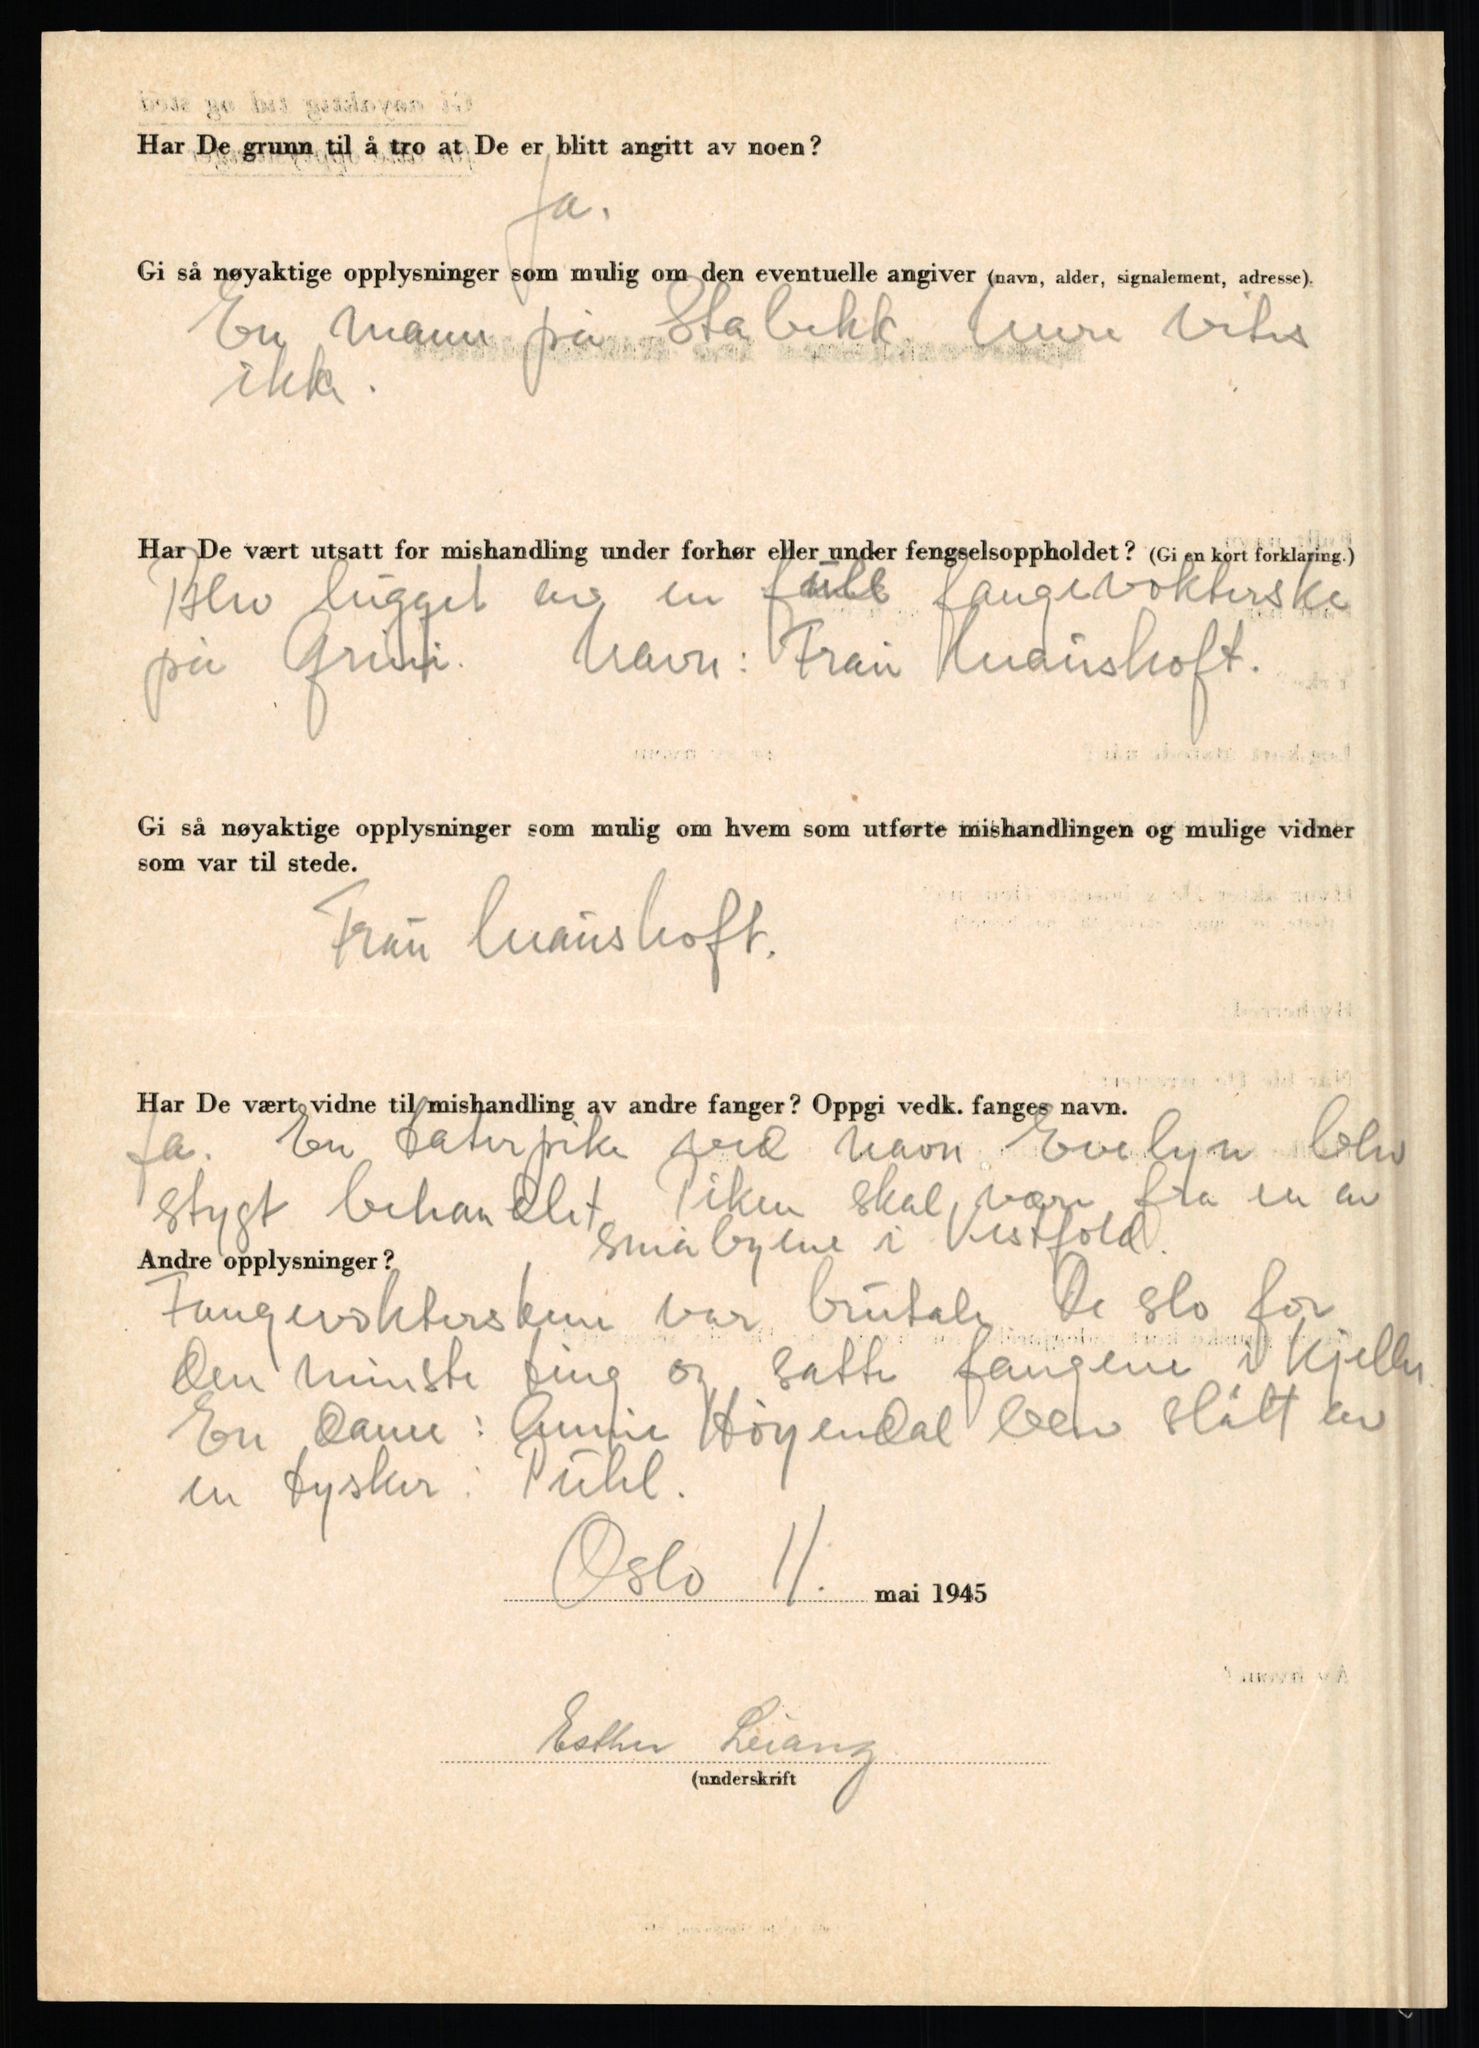 Har De grunn til å tro at De er blitt angitt av noen?
Ja.
Gi så nøyaktige opplysninger som mulig om den eventuelle angiver (navn, alder, signalement, adresse).
En mann på Stabekk mere vites
ikke.
Har De vært utsatt for mishandling under forhør eller under fengselsoppholdet? (Gi en kort forklaring.)
Blev lugget av en full fangevokterske
på Grini. Navn: Frau Maushoft.
Gi så nøyaktige opplysninger som mulig om hvem som utførte mishandlingen og mulige vidner
som var til stede.
Frau Maushoft.
Har De vært vidne til mishandling av andre fanger? Oppgi vedk. fanges navn.
Ja. En taterpike ved navn Evelyn blev
stygt behandlet. Piken skal være fra en av
småbyene i Vestfold.
Andre opplysninger?
Fangevokterskene var brutale De slo for
den minste ting og satte fangene i kjeller.
En dame: Annie Høyendal blev slått av
en tysker: Pühl.
Oslo 11. mai 1945
Esther Leiang
(underskrift